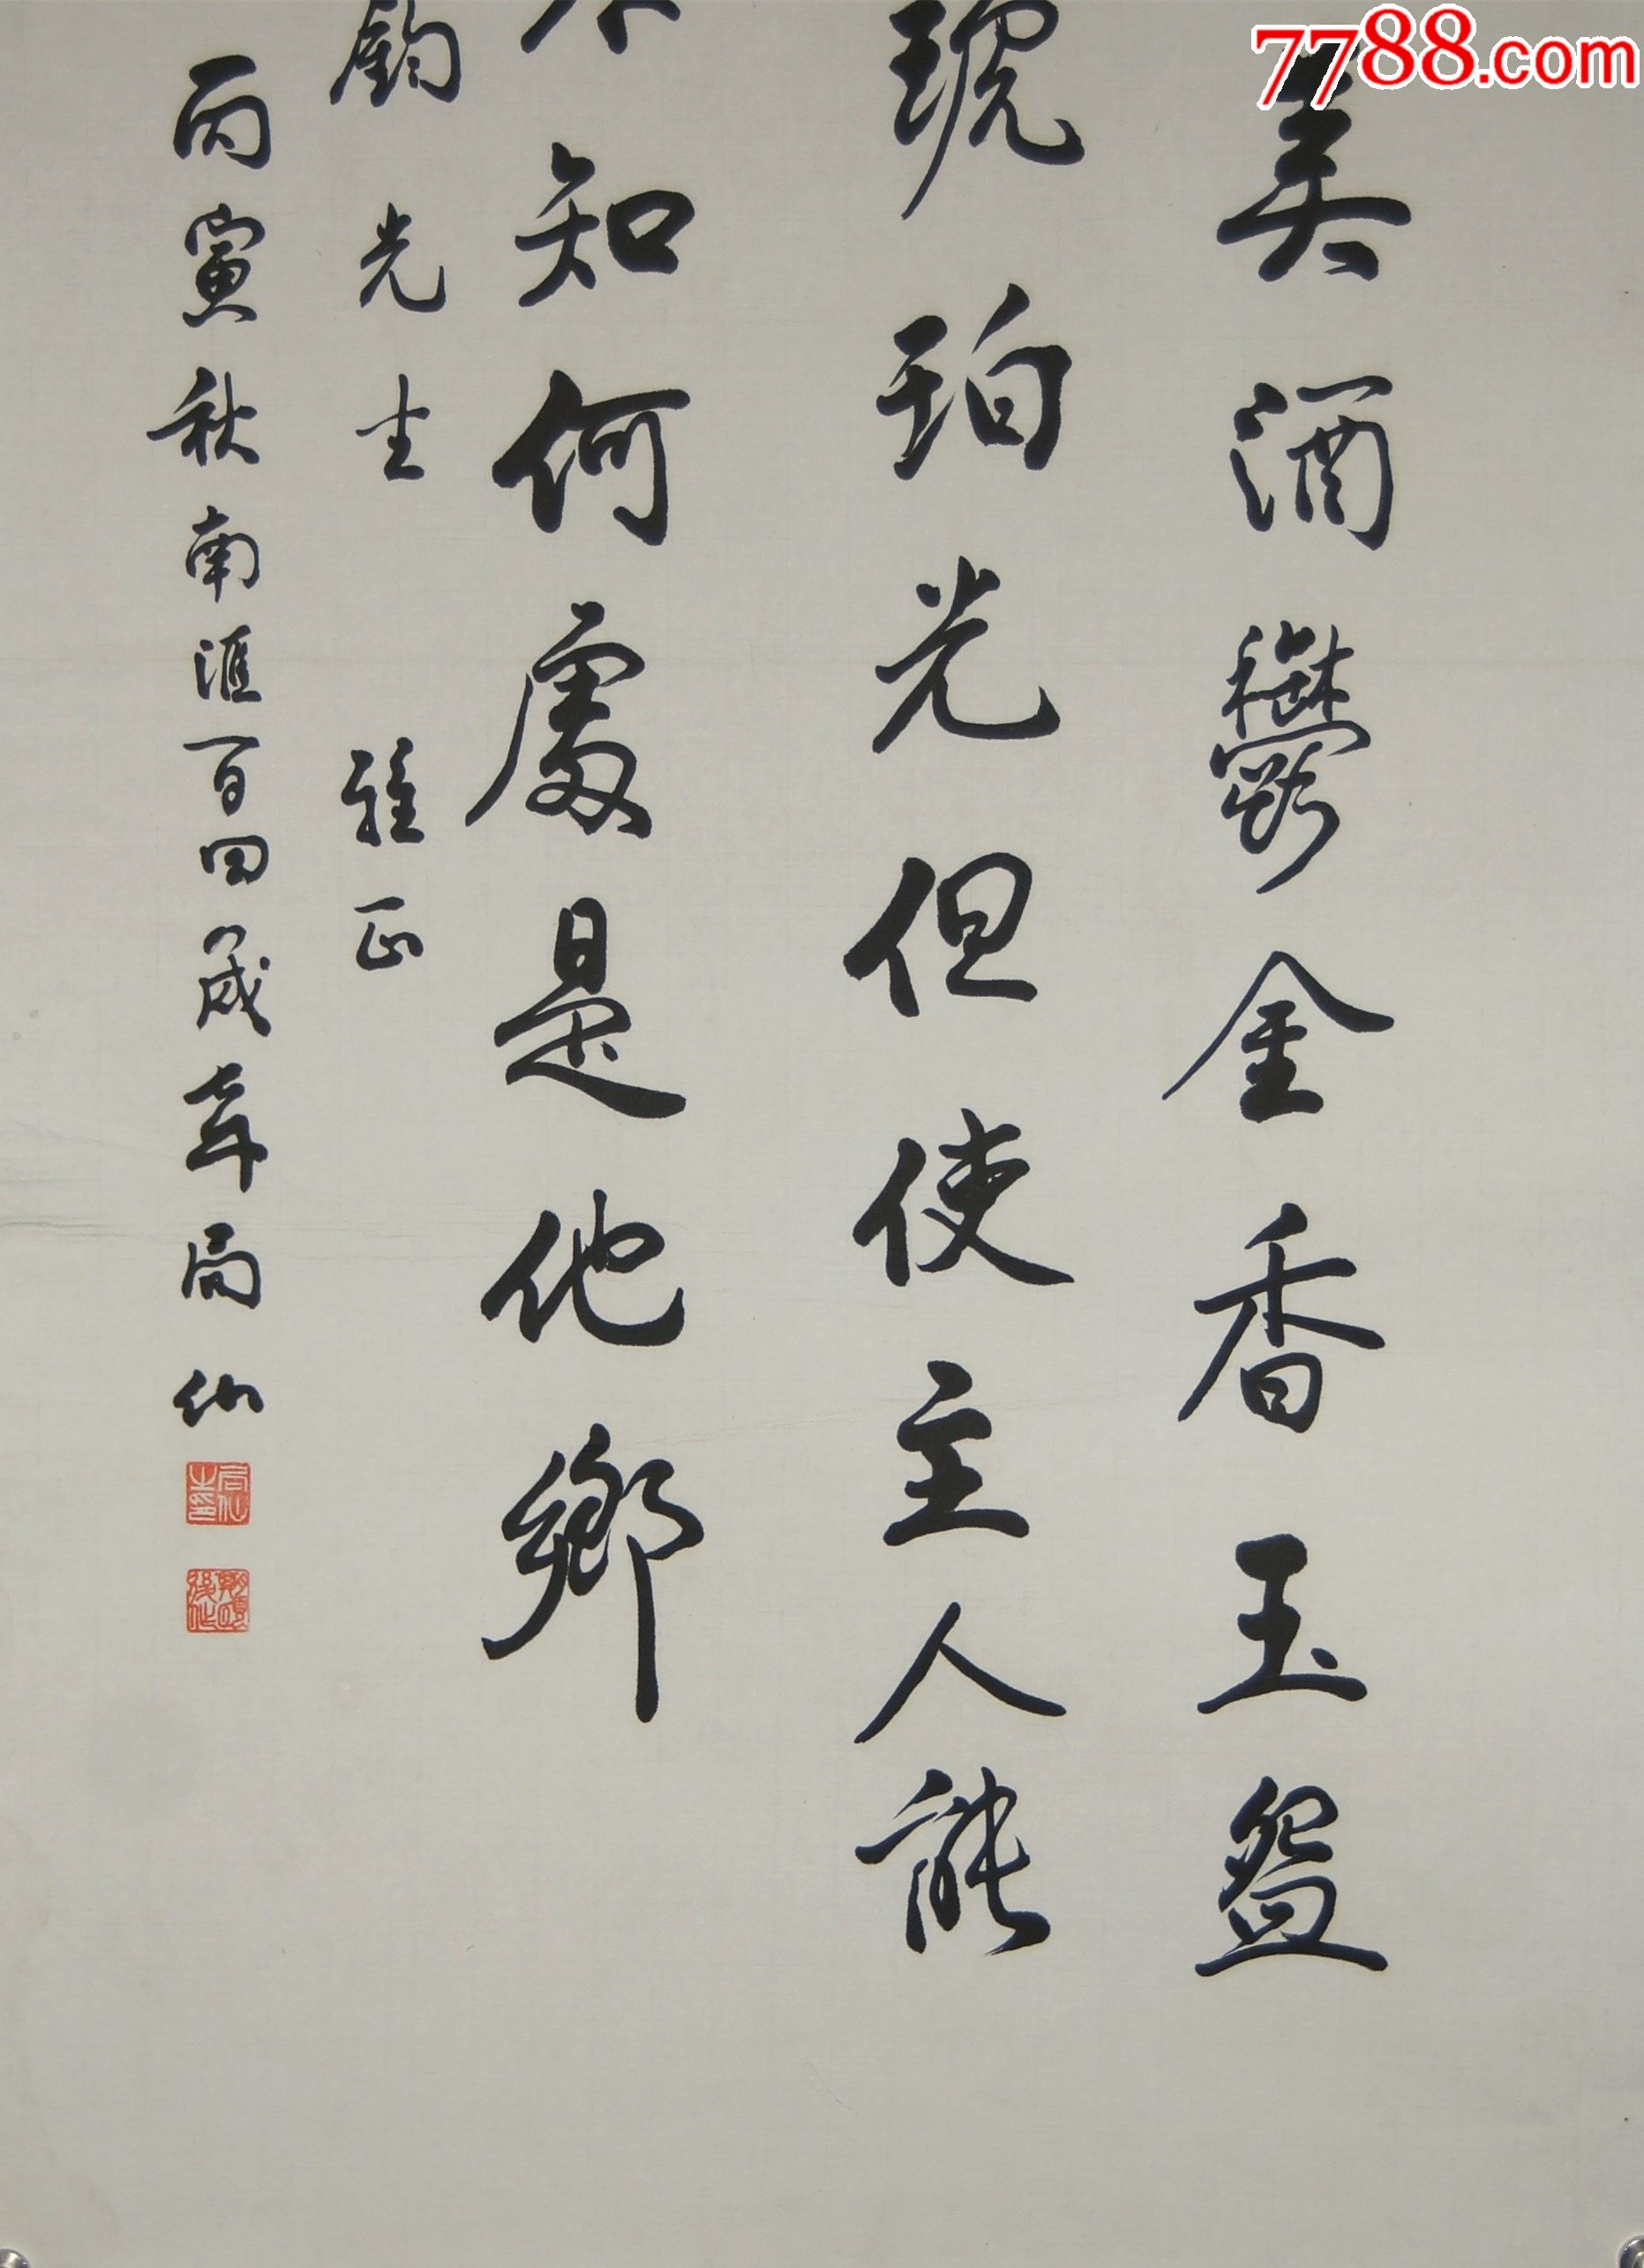 7788.com
美酒鬱金香玉盌
琥珀光但使主人能
不知何處是他鄉
鈞先生 雅正
丙寅秋南匯百四歲老人局仙